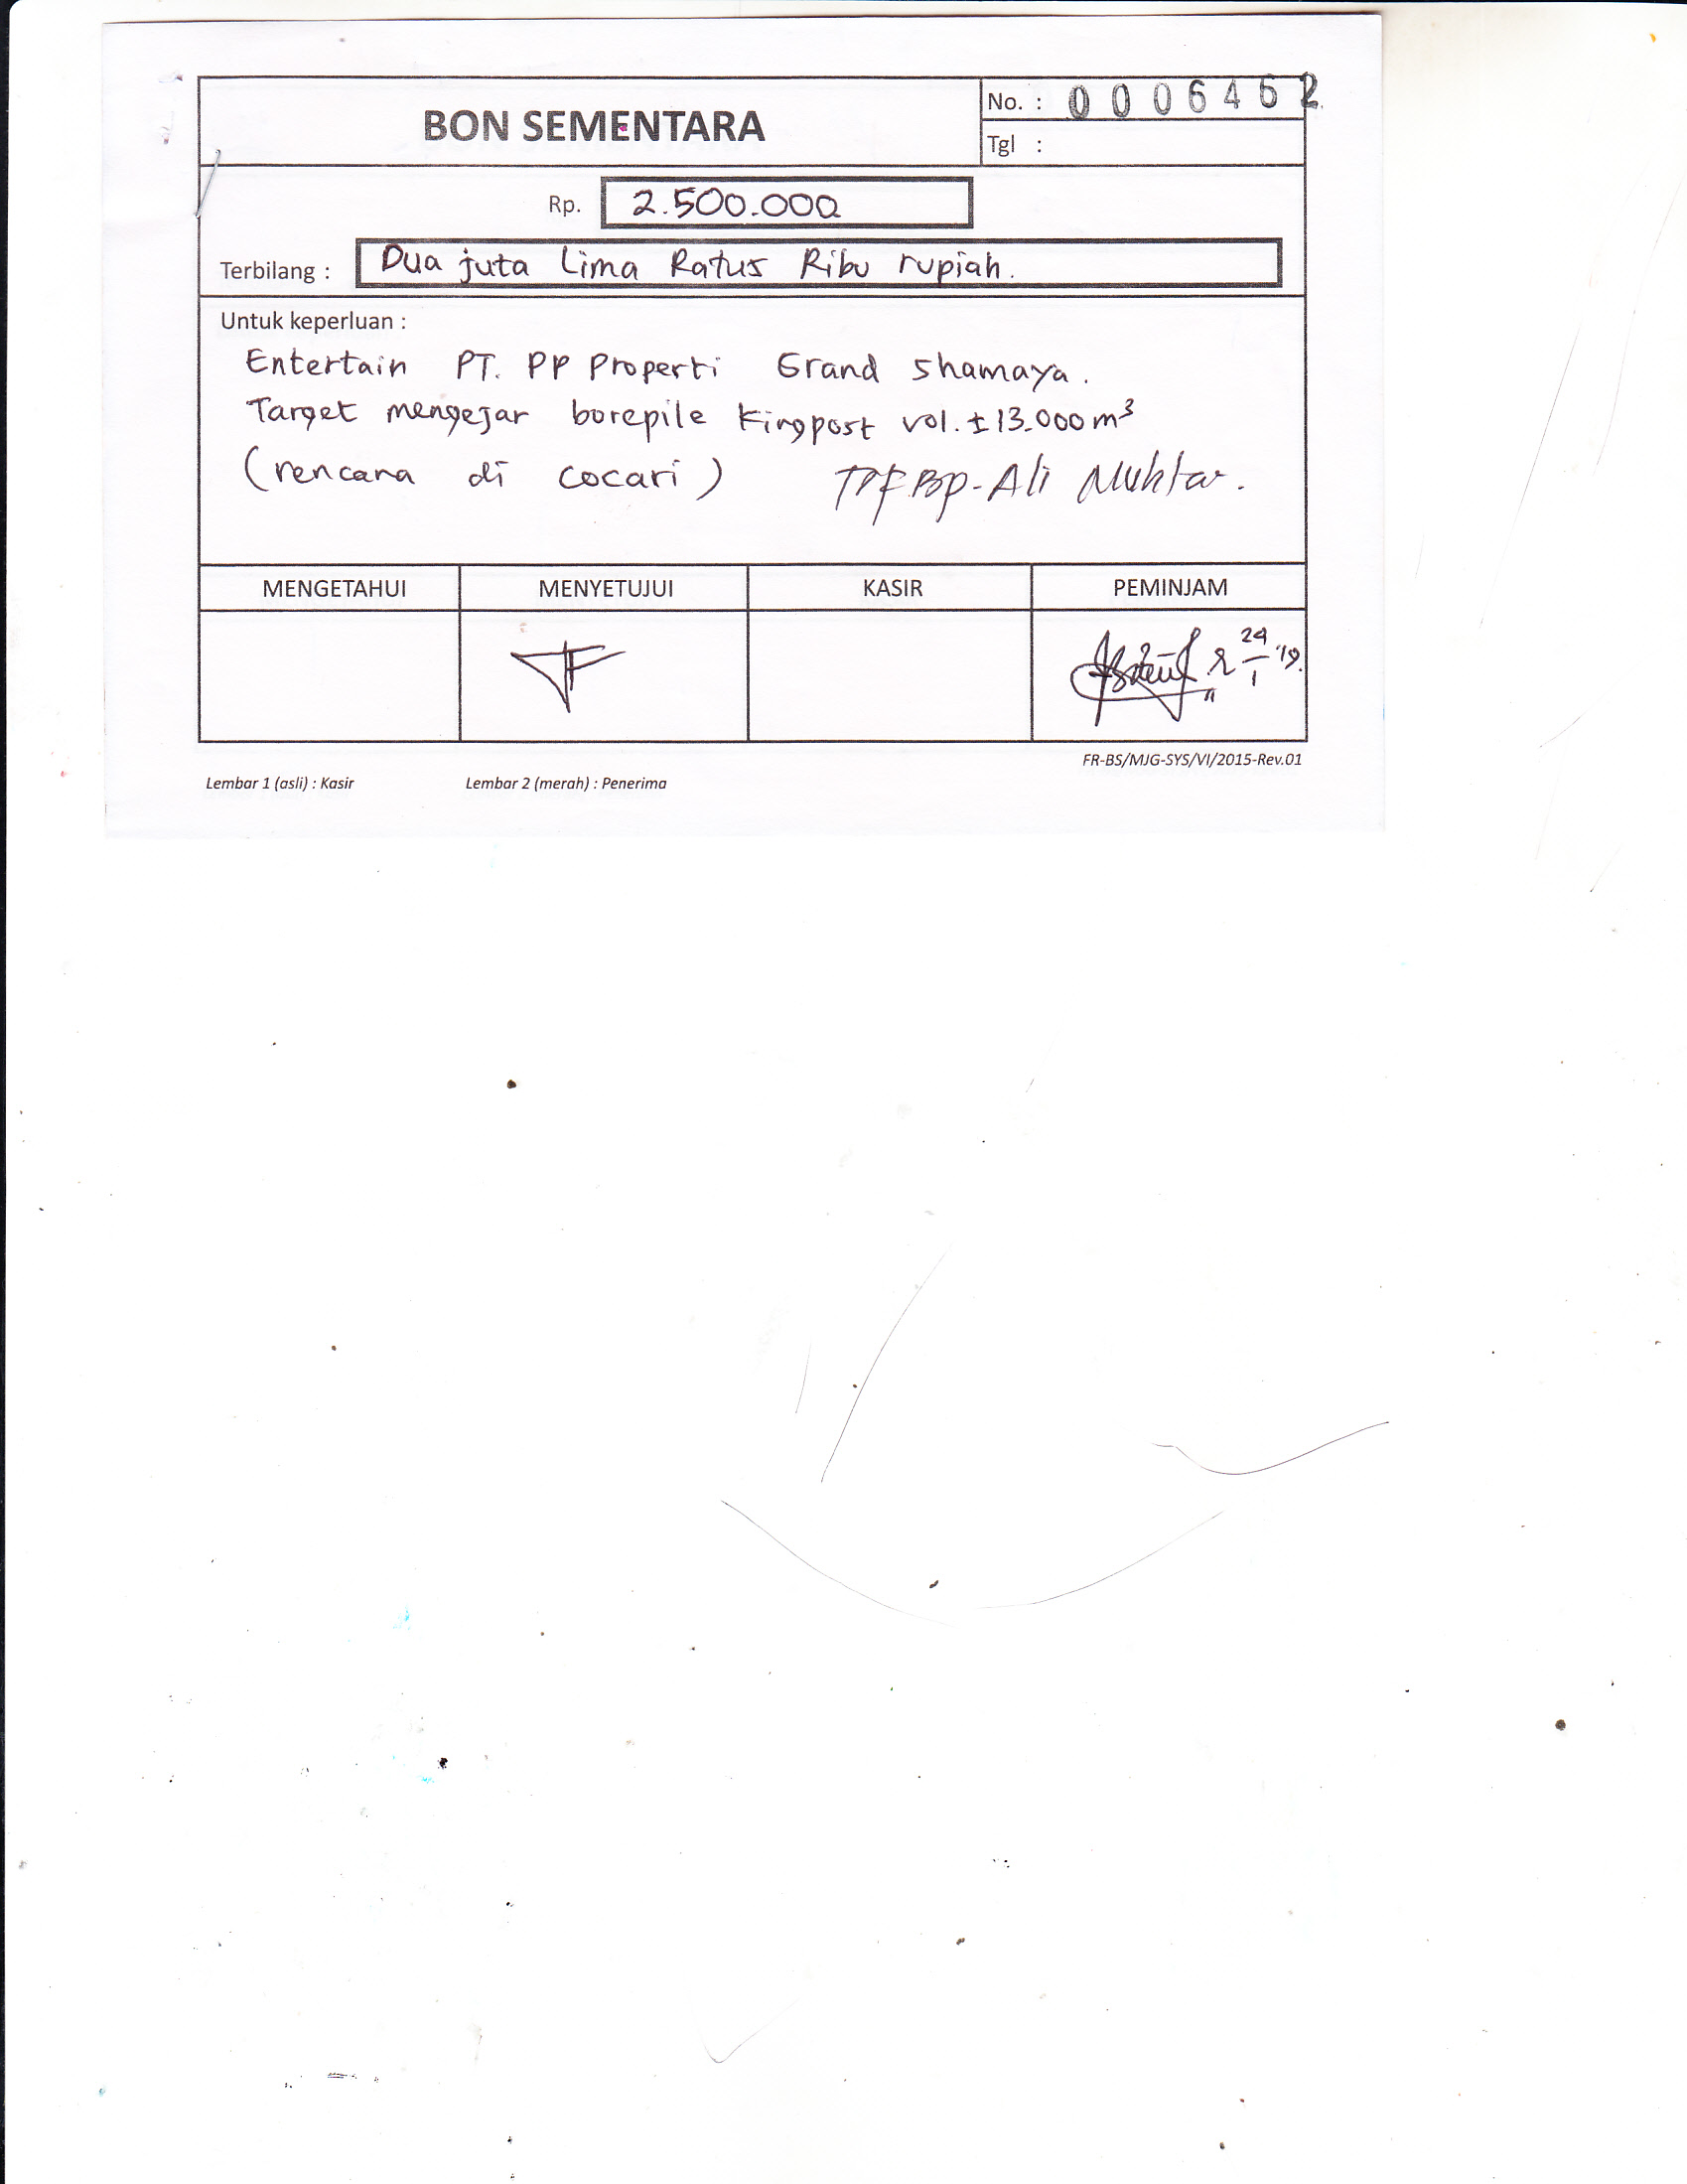 BON SEMENTARA
No. : 0006462
Tgl :
Rp. 2.500.000
Terbilang : Dua juta Lima Ratus Ribu rupiah.
Untuk keperluan :
Entertain PT. PP Properti Grand Shamaya.
Target mengejar borepile Kingpost vol. ± 13.000 m³
(rencana di cocari) TRF. Bp. Ali Mukhtar.
MENGETAHUI MENYETUJUI KASIR PEMINJAM
24/1 '19.
FR-BS/MJG-SYS/VI/2015-Rev.01
Lembar 1 (asli) : Kasir Lembar 2 (merah) : Penerima